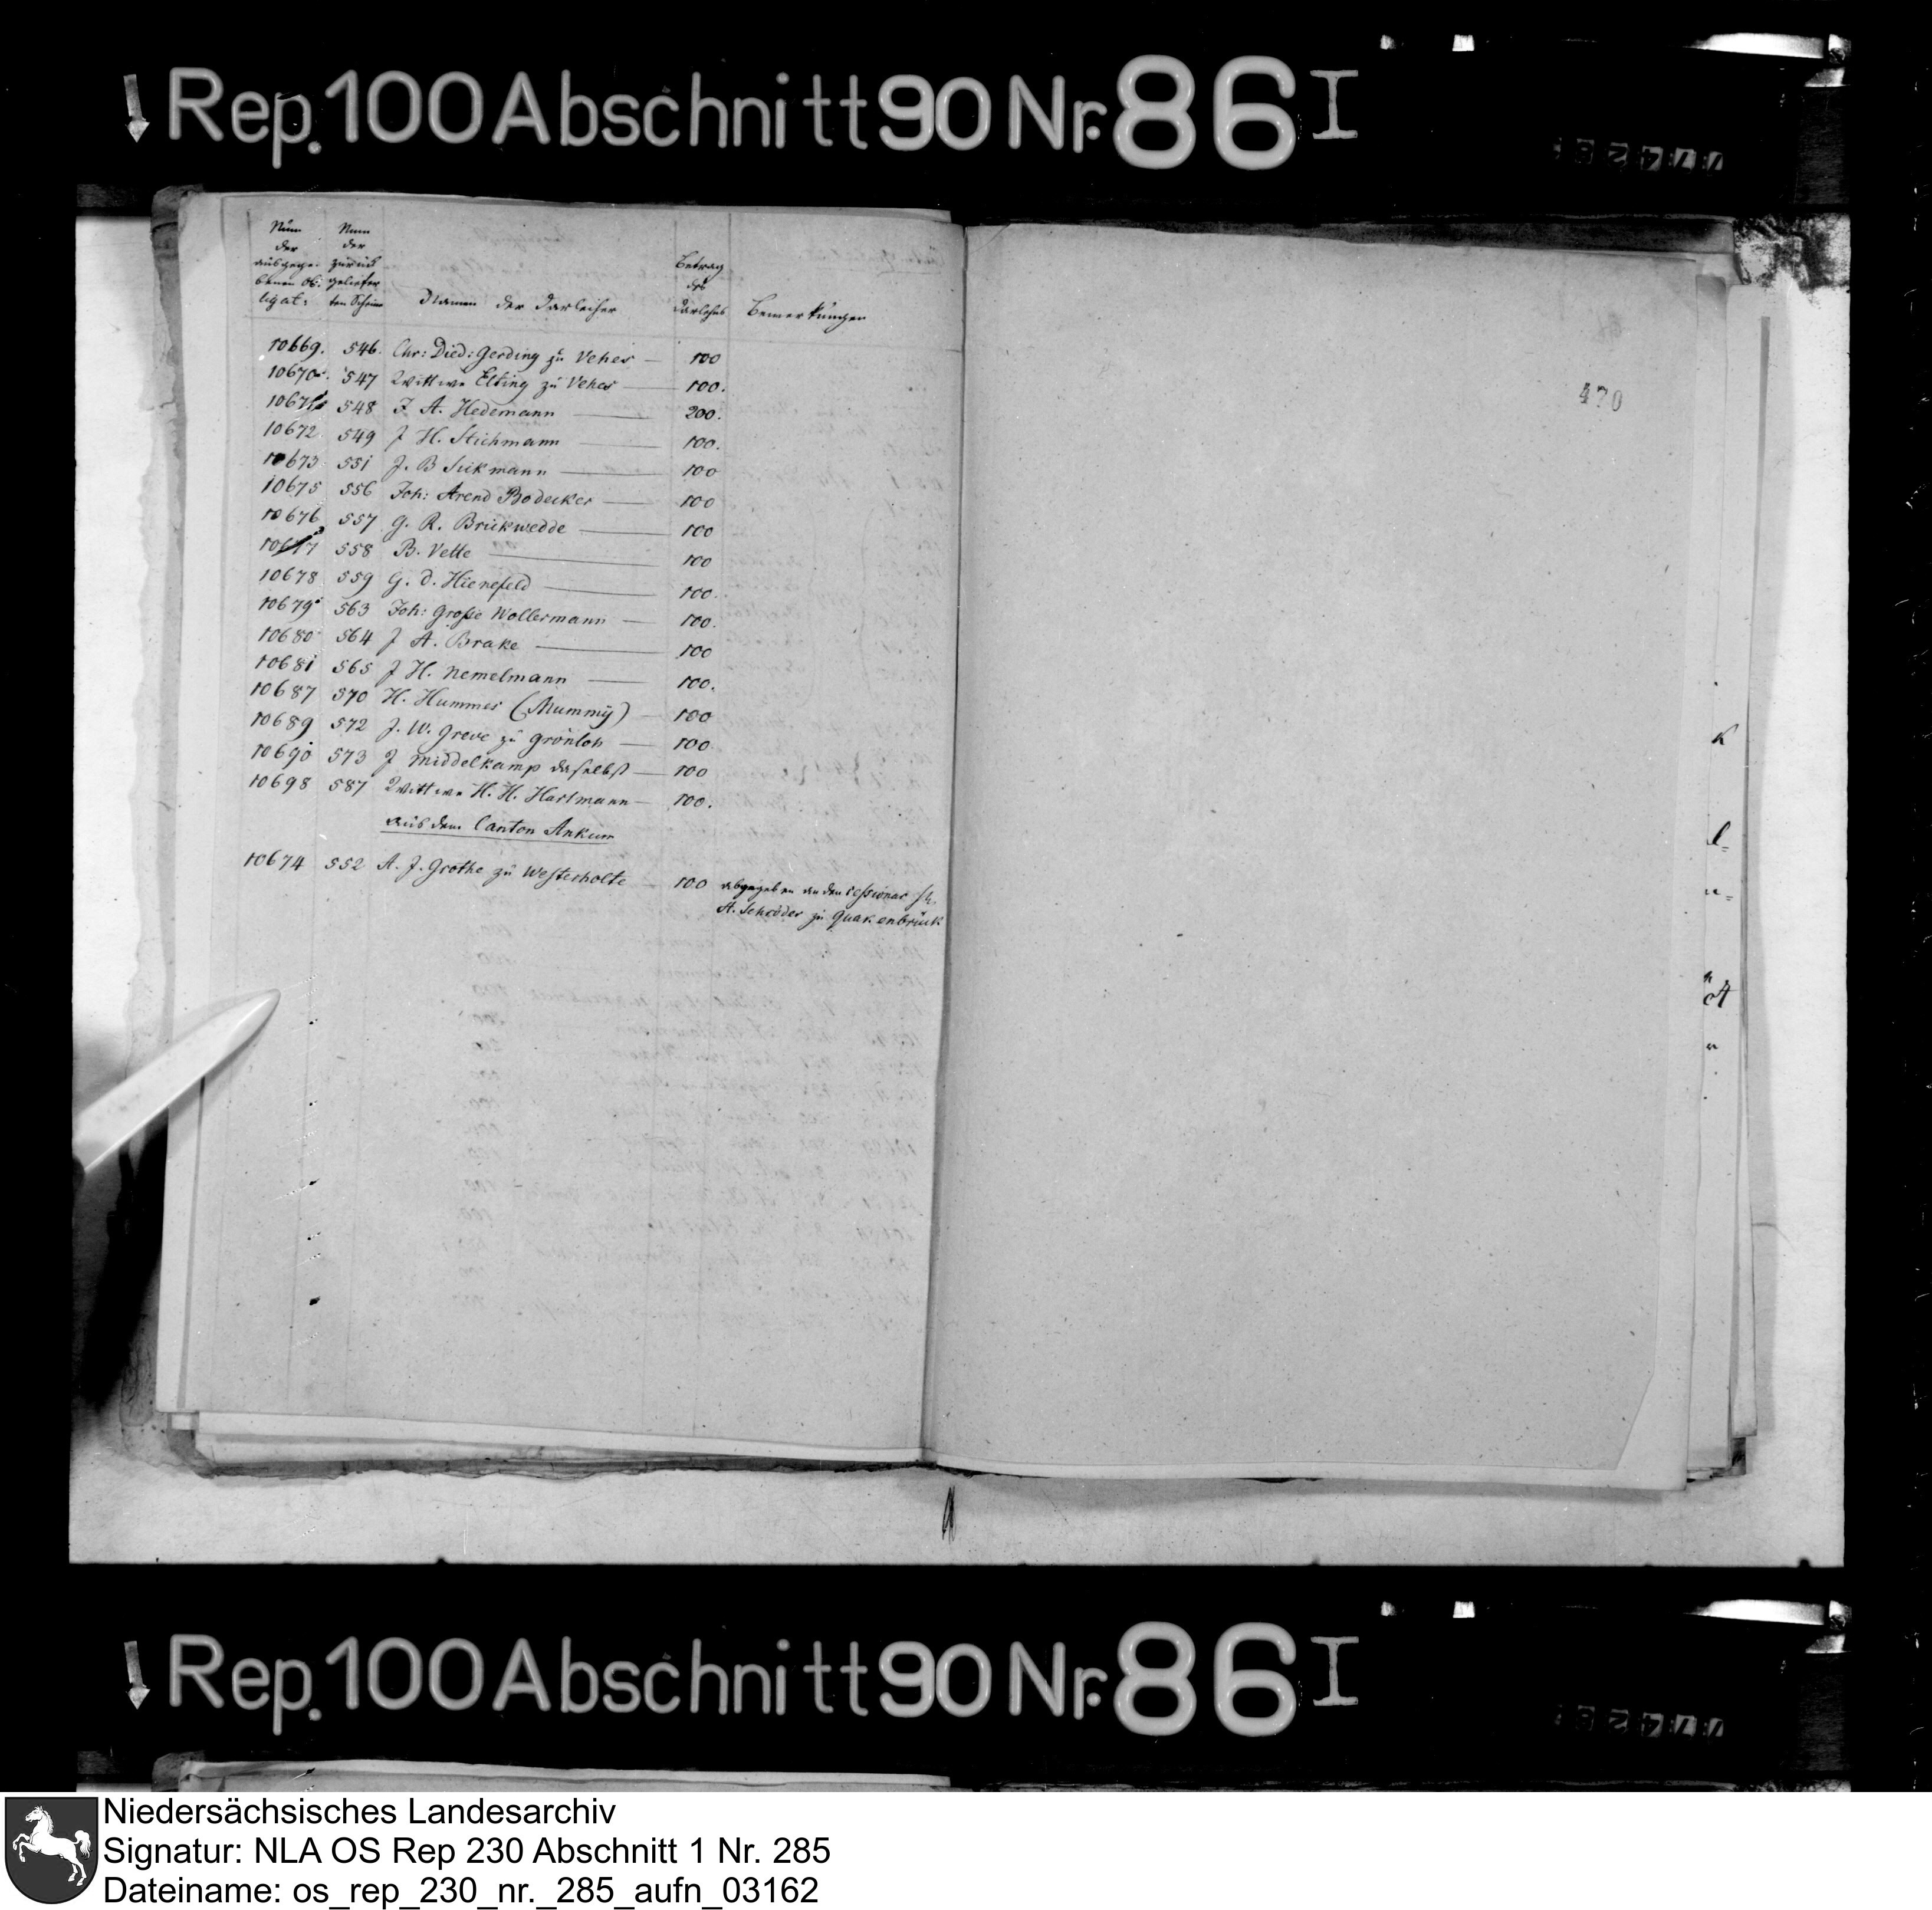 Rep. 100 Abschnitt 90 Nr. 86 I
Num Num
der der
ausgege- zurück
benen Ob- geliefer
ligat: ten Scheine Namen der Darleiher Betrag des Darlehns Bemerkungen
10669. 546. Chr: Died: Gerding zu Vehes — 100
10670. 547 Wittwe Elting zu Vehes — 100.
10671 548 F. A. Hedemann — 200.
10672 549 J H. Stichmann — 100.
10673 551 J. B Siekmann — 100
10675 556 Joh: Arend Bödecker — 100
10676 557 G. R. Brückwedde — 100
10677 558 B. Vette — 100
10678 559 G. D. Hienefeld — 100.
10679 563 Joh: Große Wollermann — 100.
10680 564 J A. Brake — 100
10681 565 J H. Nemelmann — 100.
10687 570 H. Hummer (Mummÿ) — 100
10689 572 J. W. Greve zu Grönloh — 100.
10690 573 J Middelkamp daselbst — 100
10698 587 Wittwe H. H. Hartmann — 100.
aus dem Canton Ankum
10674 552 A. J. Grothe zu Westerholte — 100 abgegeben an den Cessionar
A. Schröder zu Quakenbrück
470
Rep. 100 Abschnitt 90 Nr. 86 I
Niedersächsisches Landesarchiv
Signatur: NLA OS Rep 230 Abschnitt 1 Nr. 285
Dateiname: os_rep_230_nr._285_aufn_03162